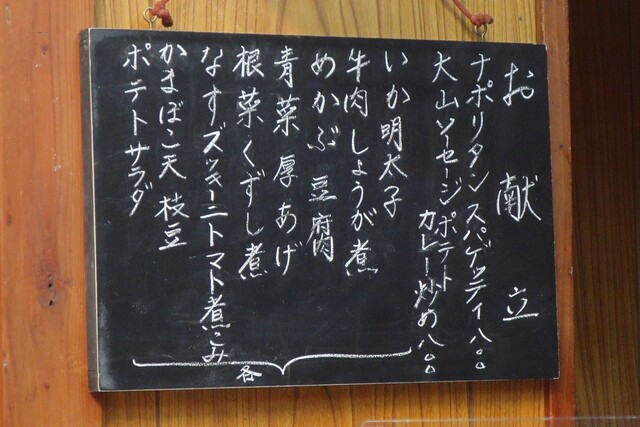 お献立
ナポリタンスパゲッティ八〇〇
大山ソーセージポテト
カレー炒め八〇〇
いか明太子
牛肉しょうが煮
めかぶ豆腐
青菜厚あげ
根菜くずし煮
なすズッキーニトマト煮こみ
かまぼこ天枝豆
ポテトサラダ
各